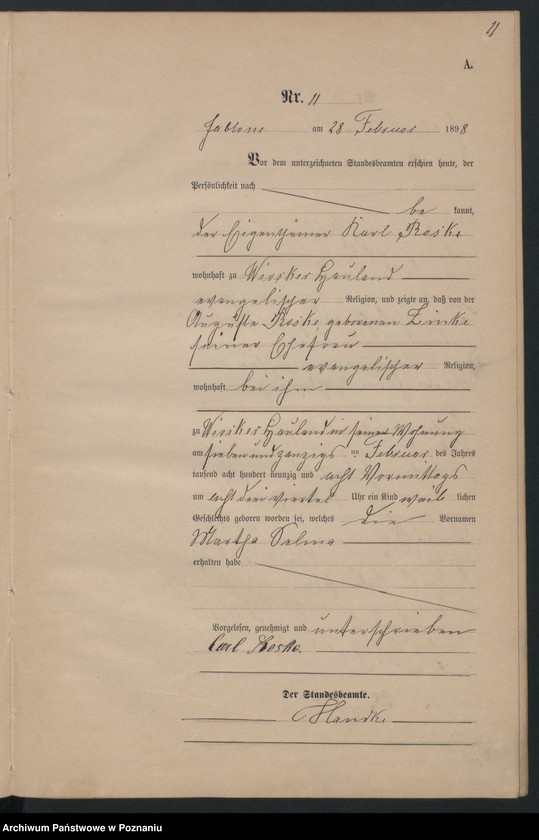 11
A.
Nr. 11
Jablone am 28 Februar 1898
Vor dem unterzeichneten Standesbeamten erschien heute, der
Persönlichkeit nach
be kannt,
der Eigenthümer Karl Roske
wohnhaft zu Wiosker Hauland
evangelischer Religion, und zeigte an, daß von der
Auguste Roske geborenen Linke
seiner Ehefrau
evangelischer Religion,
wohnhaft bei ihm
zu Wiosker Hauland in seiner Wohnung
am sieben und zwanzigs ten Februar des Jahres
tausend acht hundert neunzig und acht Vormittags
um acht drei viertel Uhr ein Kind weib lichen
Geschlechts geboren worden sei, welches die Vornamen
Martha Selma
erhalten habe
Vorgelesen, genehmigt und unterschrieben
Carl Roske.
Der Standesbeamte.
Archiwum Państwowe w Poznaniu